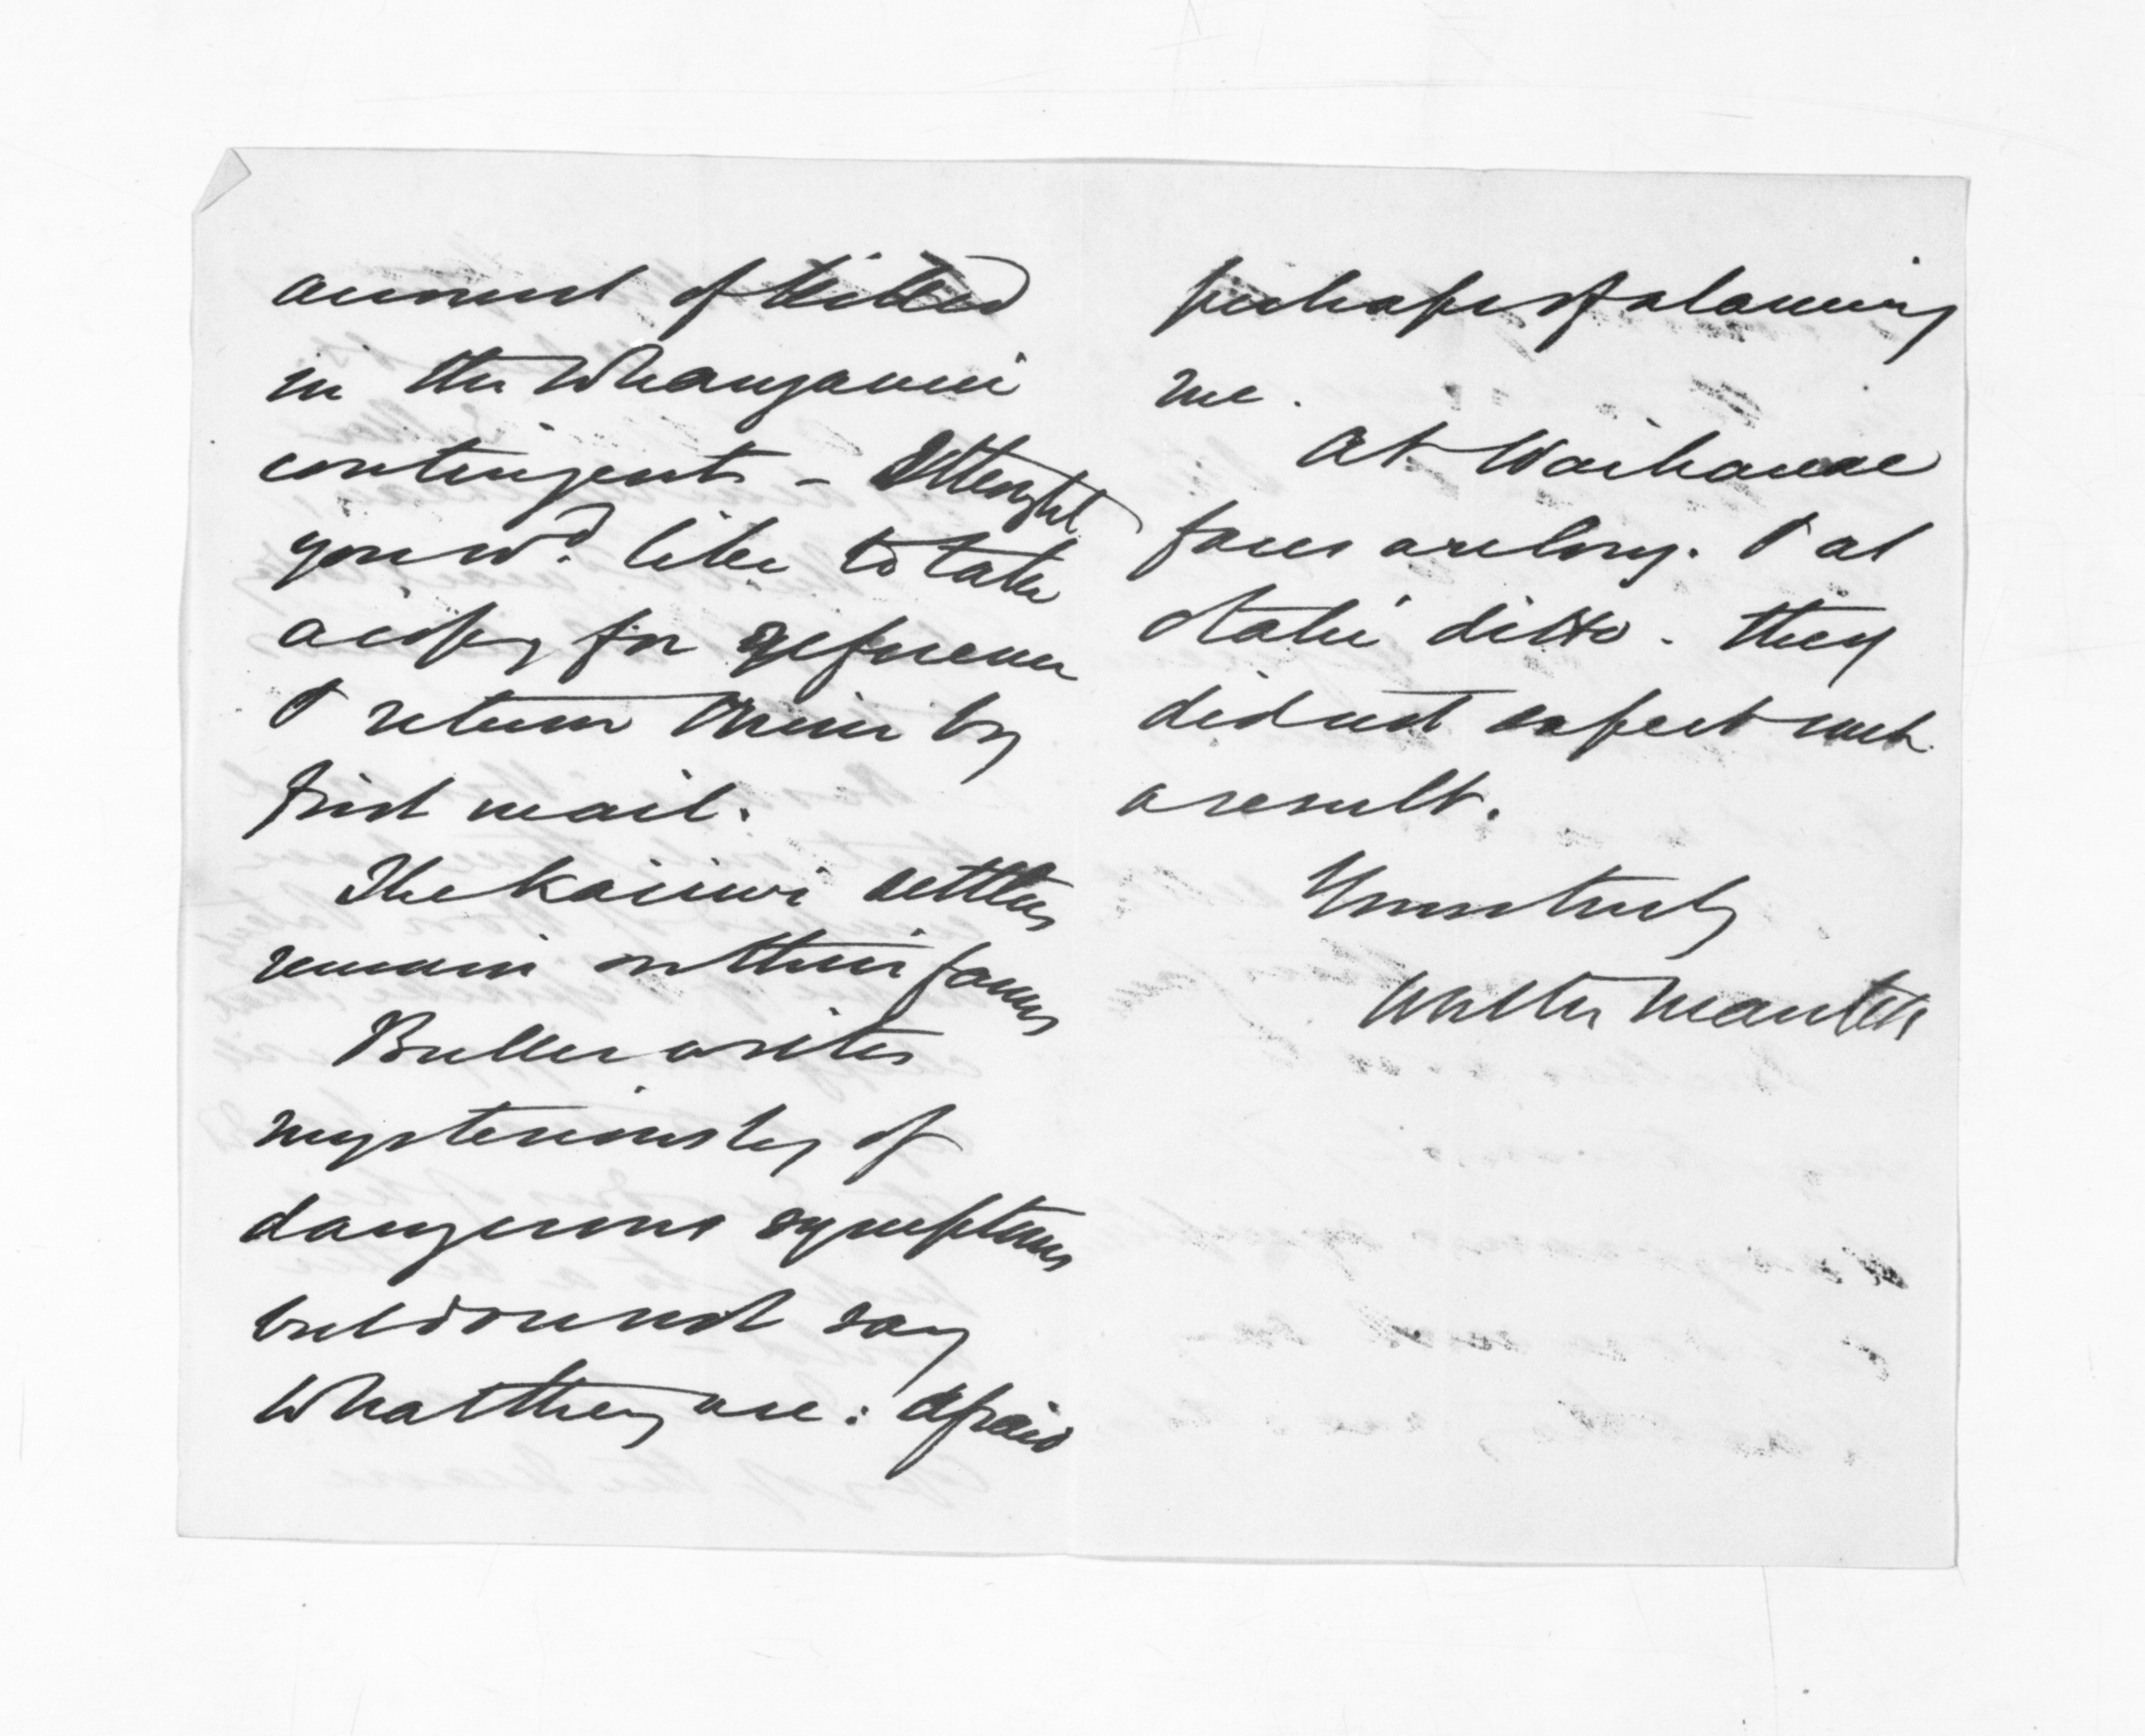 account of killed
in the Whanganui
contingent - I thought
you wd. like to take
a copy for reference
I return them by
first mail.
The Kaiiwi settlers
remain on their farms
Buller writes
mysteriously of
dangerous symptoms
but does not say
what they are: afraid
perhaps of alarming
me.
At Waikanae
faces are long. & at
Otaki ditto. They
did not expect such
a result.
Yours truly
Walter Mantell